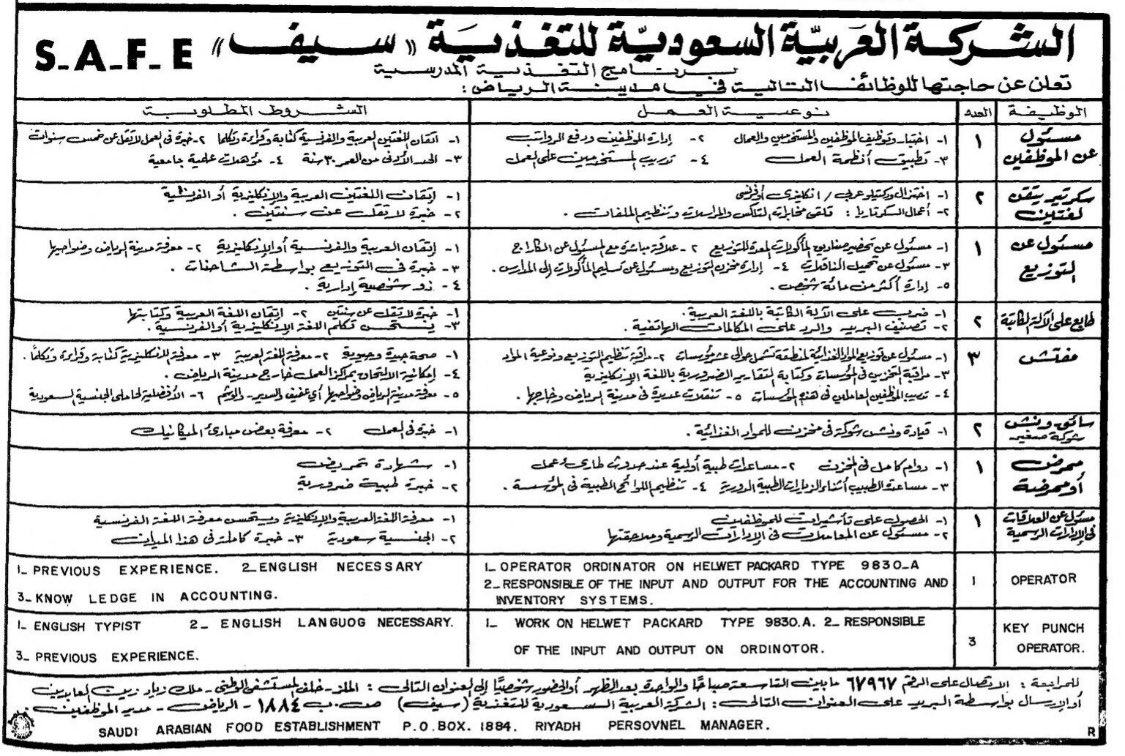 الشركة العربية السعودية للتغذية «سيف» S_A_F_E
برنامج التغذية المدرسية
تعلن عن حاجتها للوظائف التالية في مدينة الرياض :
الوظيفة العدد نوعية العمل الشروط المطلوبة
مسئول عن الموظفين ١
١- اختيار وتوظيف الموظفين والمستخدمين والعمال ٢- إدارة الموظفين ودفع الرواتب
٣- تطبيق أنظمة العمل ٤- تدريب المستخدمين على العمل
١- اتقان اللغتين العربية والفرنسية كتابة وقراءة وتكلما ٢- خبرة في العمل لا تقل عن خمس سنوات
٣- الحد الأدنى من العمر ٣٠ سنة ٤- مؤهلات علمية جامعية
سكرتير يتقن لغتين ٢
١- اختزال وكتيلو عربي / انكليزي أو فرنسي
٢- أعمال السكرتاريا : تلقي مخابرات التلكس والمراسلات وتنظيم الملفات .
١- إتقان اللغتين العربية والإنكليزية أو الفرنسية
٢- خبرة لا تقل عن سنتين .
مسئول عن التوزيع ١
١- مسئول عن تحضير صناديق المأكولات المعدة للتوزيع ٢- علاقة مباشرة مع المسئول عن الكاراج
٣- مسئول عن تحميل الناقلات ٤- إدارة مخزن التوزيع ومسئول عن تسليم المأكولات إلى المدارس .
٥- إدارة أكثر من مائة شخص .
١- إتقان العربية والفرنسية أو الإنكليزية ٢- معرفة مدينة الرياض وضواحيها
٣- خبرة في التوزيع بواسطة الشاحنات .
٤- ذو شخصية إدارية .
طابع على الآلة الكاتبة ٢
١- ضرب على الآلة الكاتبة باللغة العربية .
٢- تصنيف البريد والرد على المكالمات الهاتفية .
١- خبرة لا تقل عن سنتين ٢- إتقان اللغة العربية وكتابتها
٣- يستحسن تكلم اللغة الإنكليزية أو الفرنسية .
مفتش ٣
١- مسئول عن توزيع المواد الغذائية لمنطقة تشمل حوالي عشر مؤسسات ٢- مراقبة تنظيم التوزيع ونوعية المواد
٣- مراقبة التخزين في المؤسسات وكتابة التقارير الضرورية باللغة الإنكليزية
٤- تدريب الموظفين العاملين في هذه المؤسسات ٥- تنقلات عديدة في مدينة الرياض وخارجها .
١- صحة جيدة وحيوية ٢- معرفة اللغة العربية ٣- معرفة الإنكليزية كتابة وقراءة وتكلماً .
٤- إمكانية الالتحاق بمراكز العمل خارج مدينة الرياض .
٥- معرفة مدينة الرياض وضواحيها أي عفيف والسر والوشم ٦- الأفضلية لحاملي الجنسية السعودية
سائق ونش شوكة صغير ٢
١- قيادة ونش شوكة في مخزن للمواد الغذائية .
١- خبرة في العمل ٢- معرفة بعض مبادئ الميكانيك
ممرض أو ممرضة ١
١- دوام كامل في المخزن ٢- مساعدات طبية أولية عند حدوث طارئ عمل
٣- مساعدة الطبيب أثناء الزيارات الطبية الدورية ٤- تنظيم اللوائح الطبية في المؤسسة .
١- شهادة تمريض
٢- خبرة طبية ضرورية
مسئول عن العلاقات في الإدارات الرسمية ١
١- الحصول على تأشيرات للموظفين
٢- مسئول عن المعاملات في الإدارات الرسمية وملاحقتها
١- معرفة اللغة العربية والإنكليزية ويستحسن معرفة اللغة الفرنسية
٢- الجنسية سعودية ٣- خبرة كاملة في هذا الميدان
1_ PREVIOUS EXPERIENCE. 2_ENGLISH NECESSARY
3_ KNOW LEDGE IN ACCOUNTING.
1_ OPERATOR ORDINATOR ON HELWET PACKARD TYPE 9830_A
2_ RESPONSIBLE OF THE INPUT AND OUTPUT FOR THE ACCOUNTING AND
INVENTORY SYSTEMS.
1 OPERATOR
1_ ENGLISH TYPIST 2_ ENGLISH LANGUOG NECESSARY.
3_ PREVIOUS EXPERIENCE.
1_ WORK ON HELWET PACKARD TYPE 9830.A. 2_ RESPONSIBLE
OF THE INPUT AND OUTPUT ON ORDINOTOR.
3 KEY PUNCH
OPERATOR.
للمراجعة : الاتصال على الرقم ٦٧٩٦٧ ما بين التاسعة صباحا والواحدة بعد الظهر أو الحضور شخصيًا إلى العنوان التالي : الملز - خلف المستشفى الوطني - ملك زياد زين العابدين
أو الإرسال بواسطة البريد على العنوان التالي : الشركة العربية السعودية للتغذية (سيف) ص . ب ١٨٨٤ - الرياض - مدير الموظفين .
SAUDI ARABIAN FOOD ESTABLISHMENT P.O.BOX. 1884. RIYADH PERSOVNEL MANAGER.
R